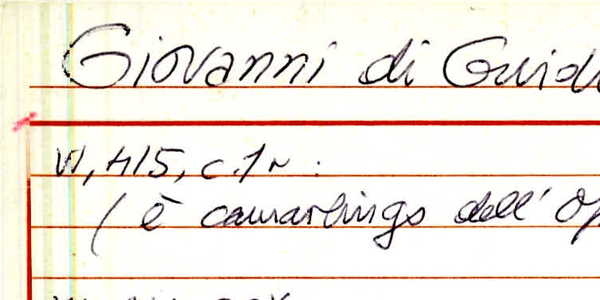 Giovanni di Guido
VI, 415, c.1v:
(è camarlingo dell'Op